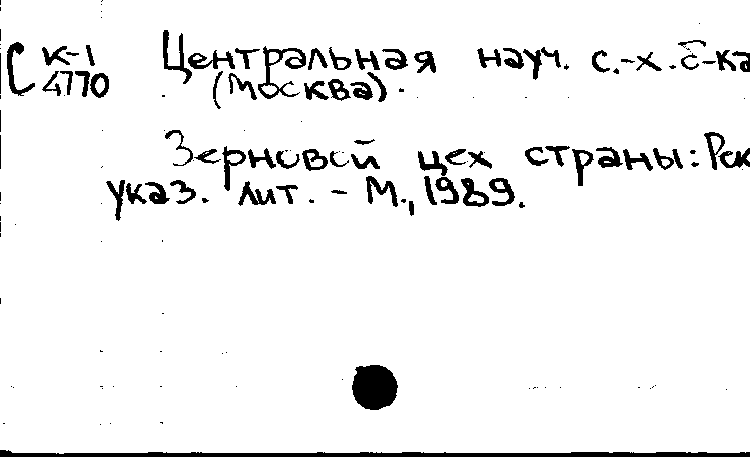 С к-1 Центральная науч. с.-х. б-ка
4770 (Москва).
Зерновой цех страны: Рек
указ. лит. - М., 1989.